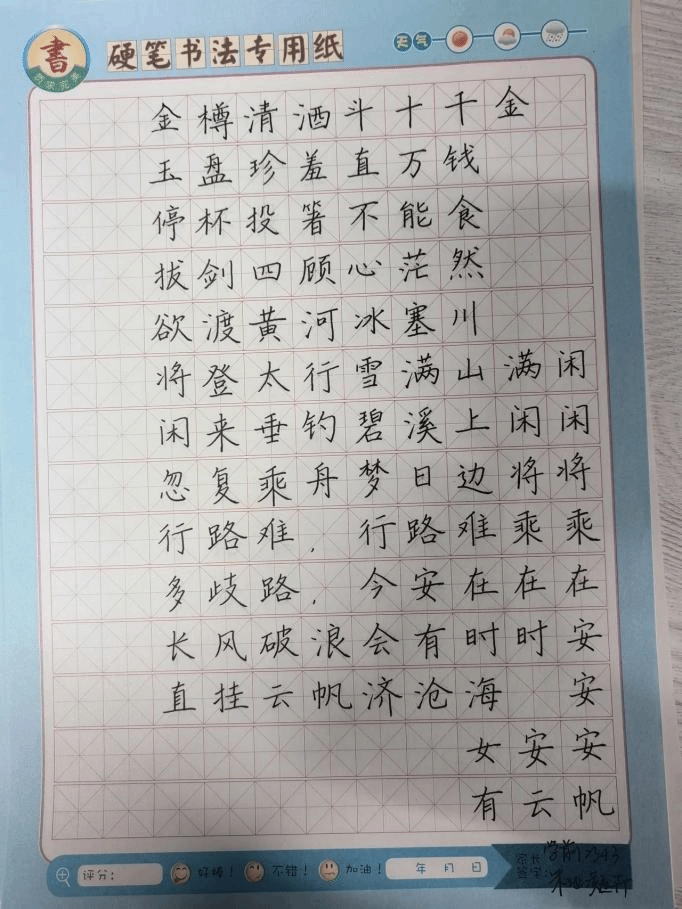 書 硬笔书法专用纸 天气
金樽清酒斗十千金
玉盘珍羞直万钱
停杯投箸不能食
拔剑四顾心茫然
欲渡黄河冰塞川
将登太行雪满山满闲
闲来垂钓碧溪上闲闲
忽复乘舟梦日边将将
行路难，行路难乘乘
多歧路，今安在在在
长风破浪会有时时安
直挂云帆济沧海 安
女安安
有云帆
评分： 好棒！ 不错！ 加油！ 年 月 日 家长签字：